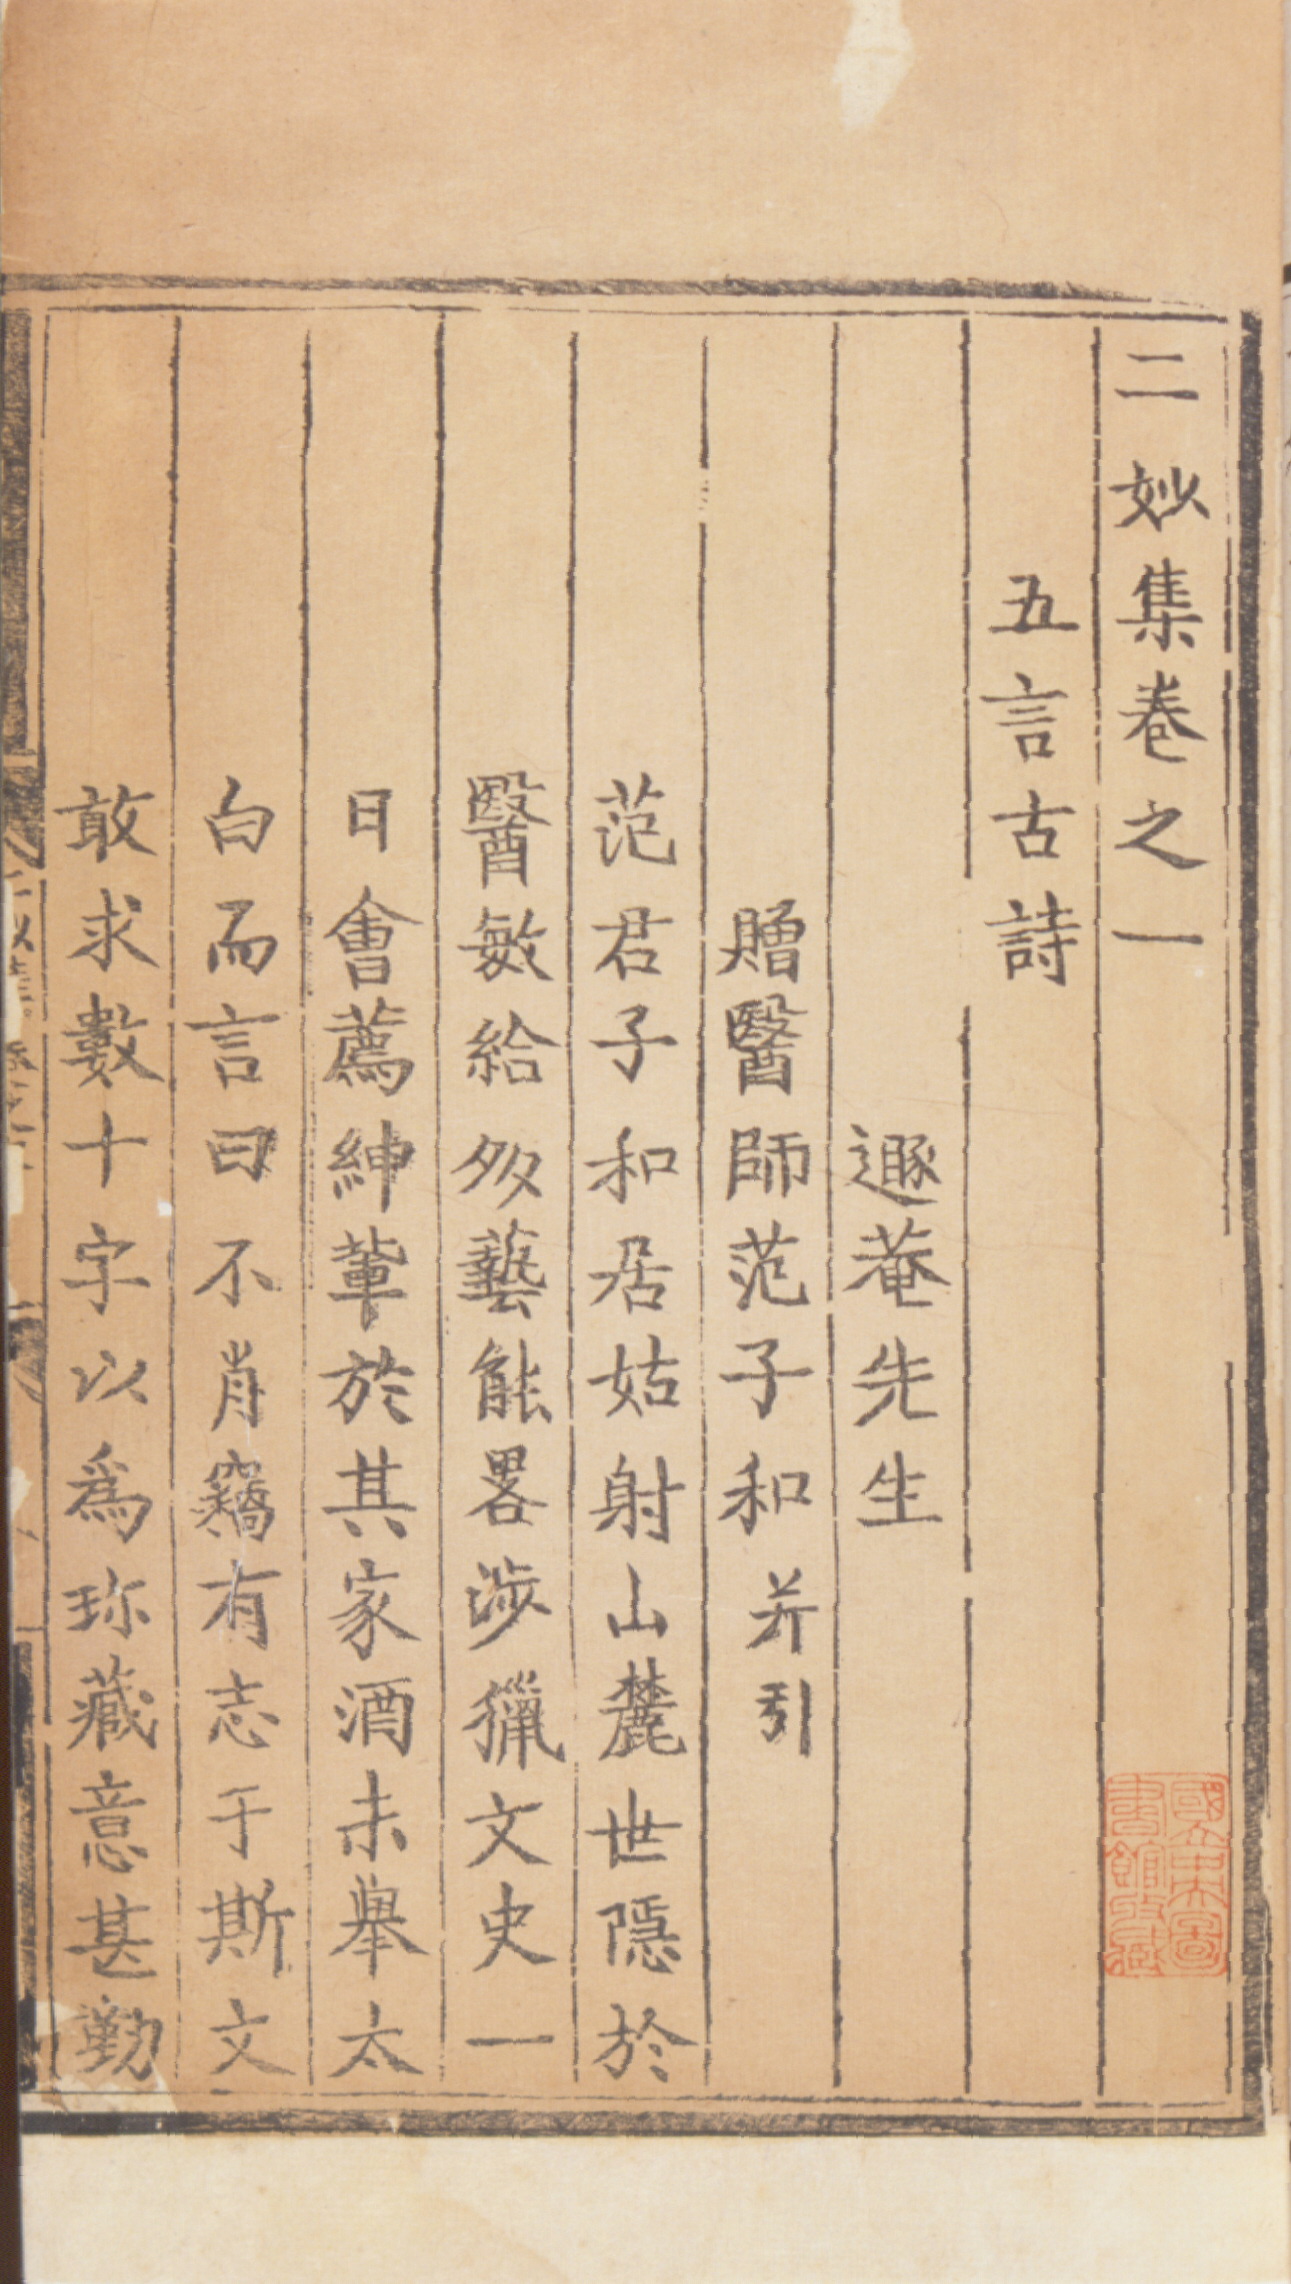 二妙集卷之一
五言古詩
遯菴先生
贈醫師范子和并引
范君子和居姑射山麓世隱於
醫敏給多藝能畧涉獵文史一
日會薦紳軰於其家酒未舉太
白而言曰不肖竊有志于斯文
敢求數十字以為珎藏意甚勤
國立中央圖
書館收藏